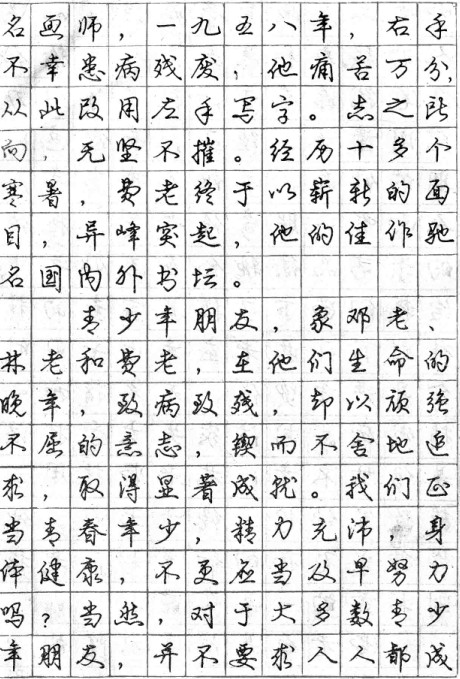 名画师，一九五八年，右手
不幸患病残废，他痛苦万分，
从此改用左手写字。志之所
向，无坚不摧。经历十多个
寒暑，费老终于以崭新的面
目，异峰突起，他的佳作驰
名国内外书坛。
青少年朋友，象邓老、
林老和费老，在他们生命的
晚年，致病致残，却以顽强
不屈的意志，锲而不舍地追
求，取得显著成就。我们正
当青春年少，精力充沛，身
体健康，不更应当及早努力
吗？当然，对于大多数青少
年朋友，并不要求人人都成